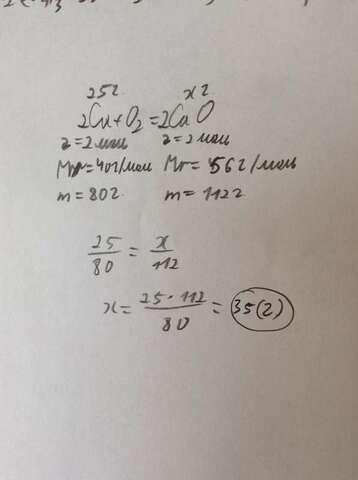 25г. x г.
2Ca+O₂=2CaO
ν=2моль ν=2моль
Mr=40г/моль Mr=56г/моль
m=80г m=112г
25/80 = x/112
x = 25·112/80 = 35(г)